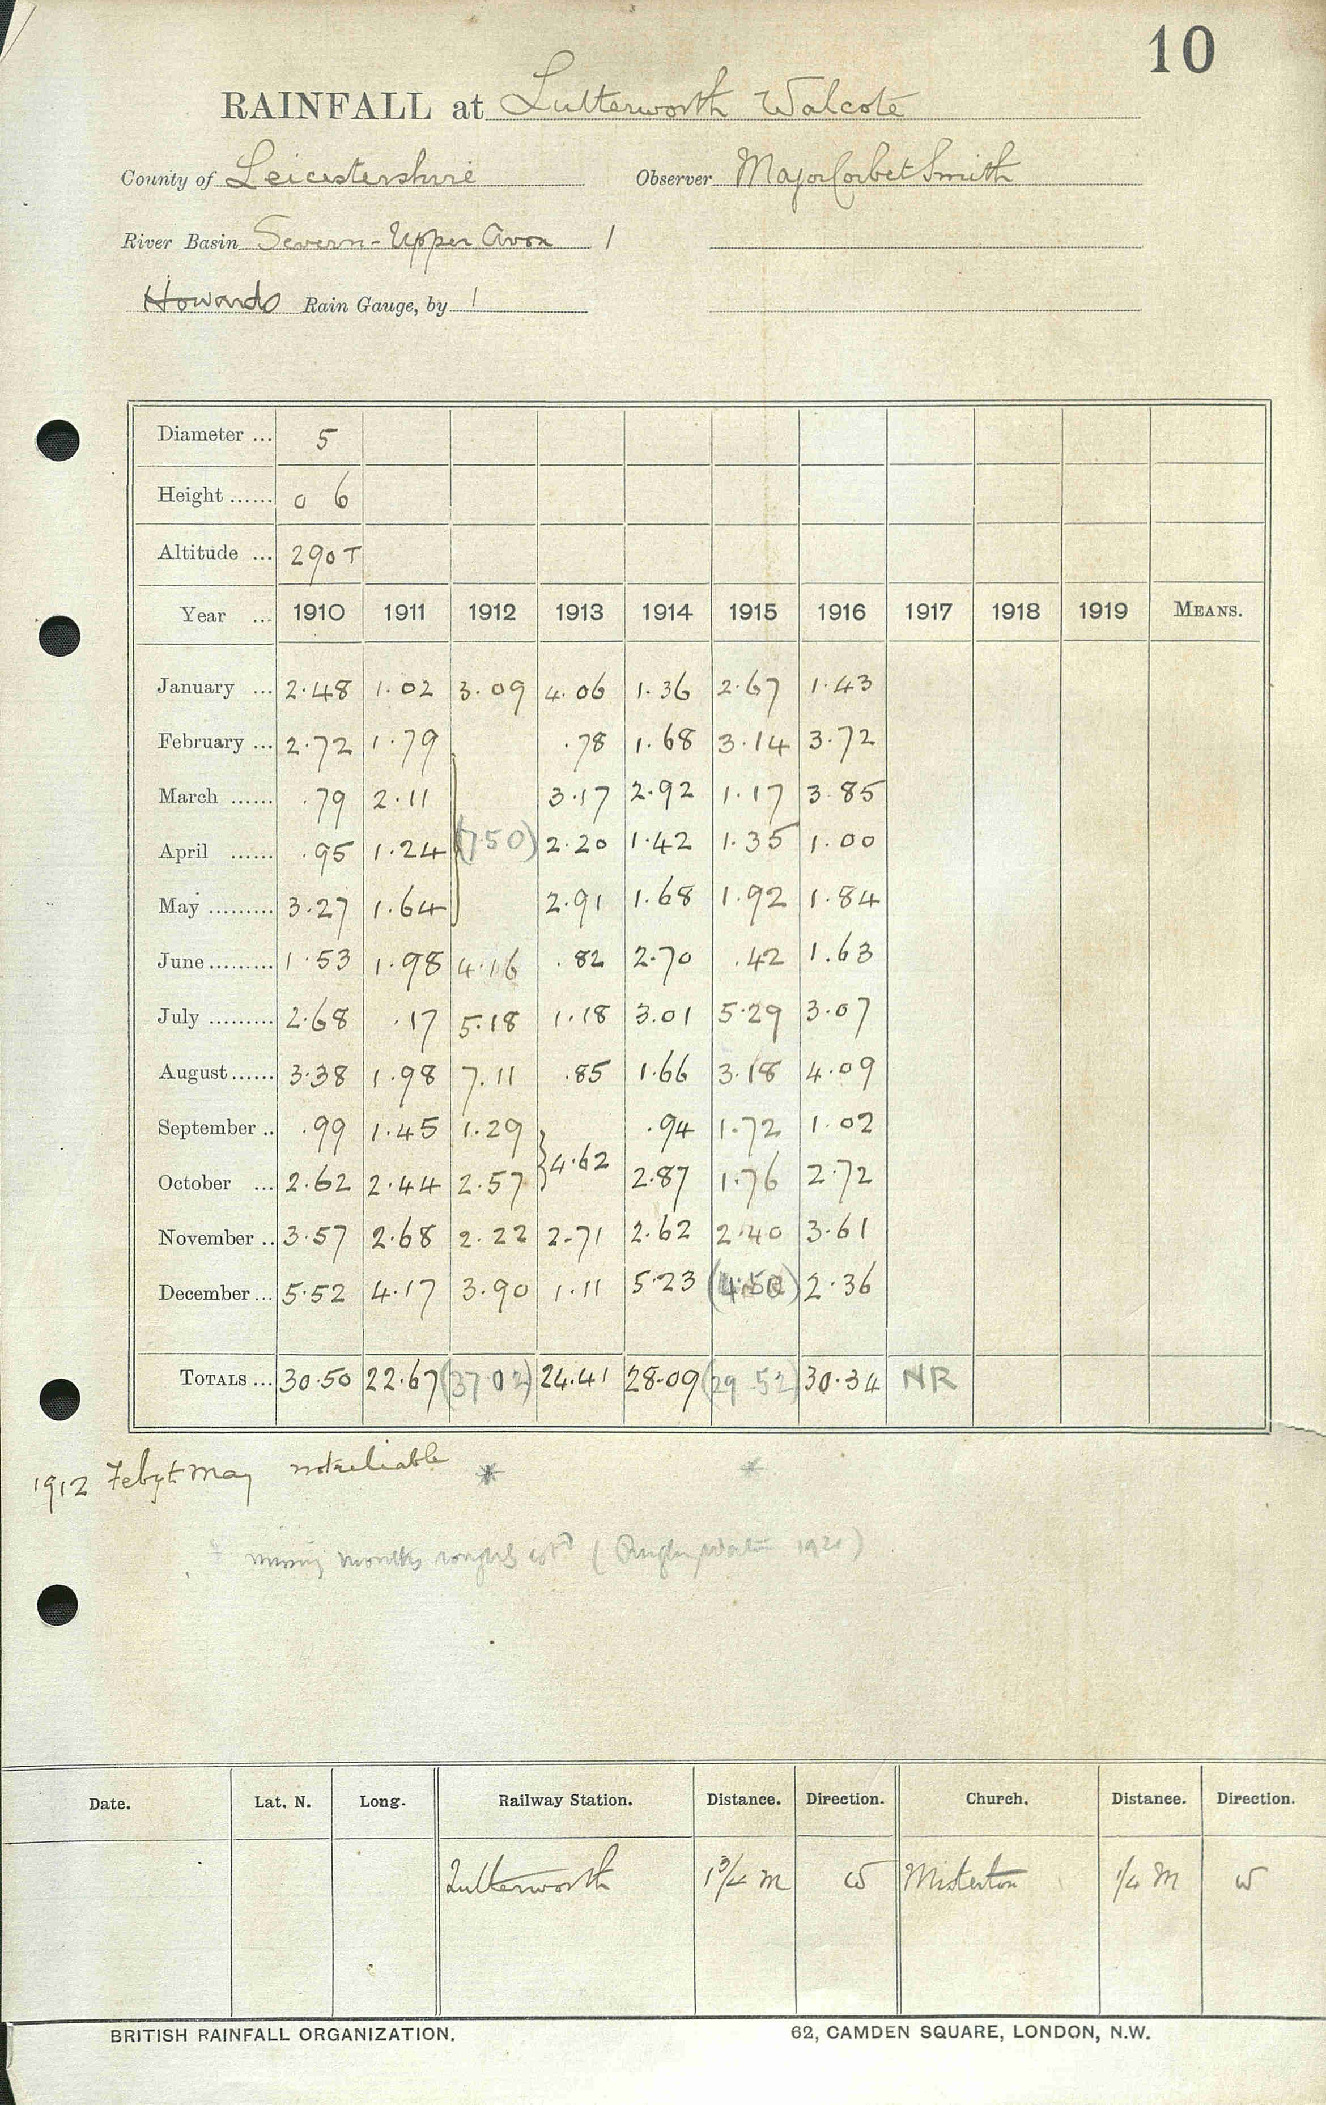 10
RAINFALL at Lutterworth Walcote
County of Leicestershire Observer Major Corbet Smith
River Basin Severn - Upper Avon 1
Howards Rain Gauge, by 1
Diameter ... 5
Height ...... 0 6
Altitude ... 290 T
Year ... 1910 1911 1912 1913 1914 1915 1916 1917 1918 1919 MEANS.
January ... 2.48 1.02 3.09 4.06 1.36 2.67 1.43
February ... 2.72 1.79 .78 1.68 3.14 3.72
March ...... .79 2.11 3.17 2.92 1.17 3.85
April ...... .95 1.24 (7 50) 2.20 1.42 1.35 1.00
May ......... 3.27 1.64 2.91 1.68 1.92 1.84
June ......... 1.53 1.98 4.16 .82 2.70 .42 1.63
July ......... 2.68 .17 5.18 1.18 3.01 5.29 3.07
August ...... 3.38 1.98 7.11 .85 1.66 3.18 4.09
September .. .99 1.45 1.29 .94 1.72 1.02
4.62
October ... 2.62 2.44 2.57 2.87 1.76 2.72
November .. 3.57 2.68 2.22 2.71 2.62 2.40 3.61
December ... 5.52 4.17 3.90 1.11 5.23 (4.50) 2.36
TOTALS ... 30.50 22.67 (37 02) 24.41 28.09 (29 52) 30.34 NR
1912 Feby t May not reliable * *
months
Date. Lat. N. Long. Railway Station. Distance. Direction. Church. Distance. Direction.
Lutterworth 1 3/4 m W Misterton 1/4 m W
BRITISH RAINFALL ORGANIZATION. 62, CAMDEN SQUARE, LONDON, N.W.